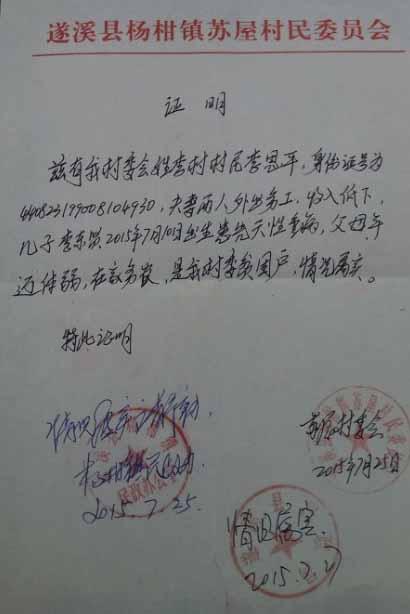 遂溪县杨柑镇苏屋村民委员会
证 明
兹有我村委会姓李村村民李恩平,身份证号为
440823199008104930,夫妻两人外出务工,收入低下,
儿子李东 2015年7月10日出生患先天性重病,父母年
迈体弱,在家务农,是我村委贫困户,情况属实。
特此证明
苏屋村委会
2015年7月25日
民政办公
2015.7.25
情况属实.
2015.7.27